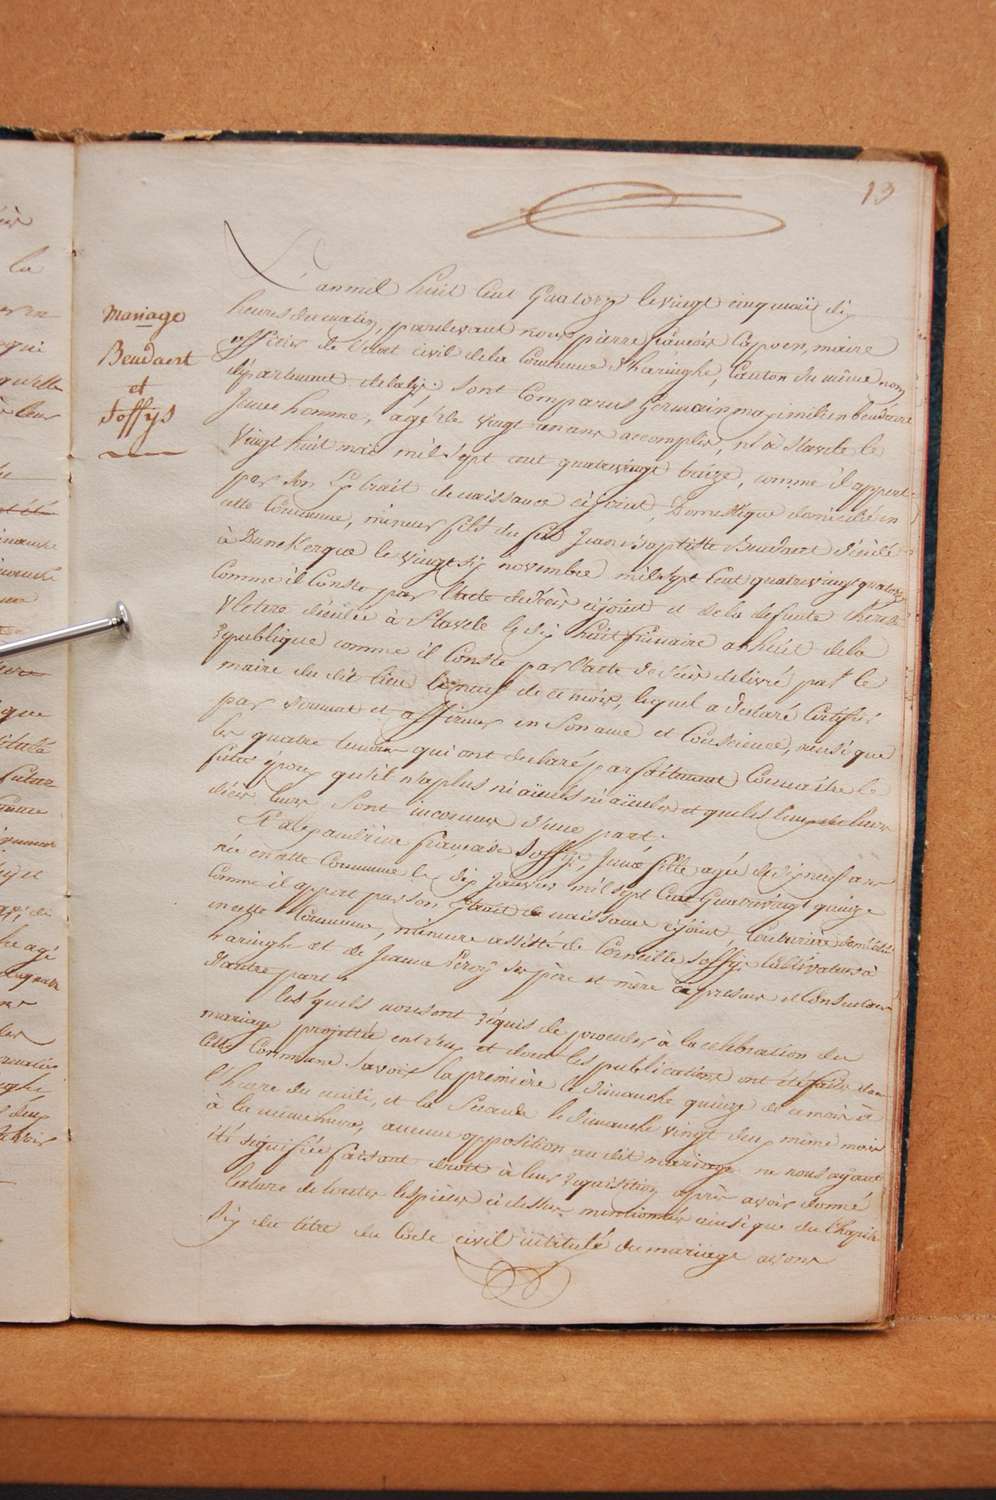 13
Mariage
Beudaert
et
Soffÿs
L'an mil huit cent quatorze le vingt cinq mai dix
heures du matin, pardevant nous pierre françois Cappoen, maire
officier de l'état civil de la Commune d'haringhe, Canton du même nom
département de la lÿs sont Comparus Germain maximilien Beudaert
Jeune homme, agé de vingt un ans accomplis, né à Stavele le
vingt huit mai mil sept cent quatre vingt treize, comme il appert
par son Extrait de naissance cijoint, Domestique domicilié en
cette Commune, mineur fils du feu Jean Baptiste Beudaert décédé
à Dunkerque le vingt six novembre mil sept Cent quatre vingt quatorze
Comme il Conste par l'acte de décès cijoint et de la defunte thérèse
décédée à Stavele le dix huit frimaire an huit de la
république comme il Conste par l'acte de décès délivré par le
maire du dit lieu le neuf de ce mois, lequel a déclaré Certifié
par serment et affirmer en son ame et Conscience, ainsi que
les quatre temoins qui ont declaré parfaitement Connaître le
futur époux qu'il n'a plus ni aïeuls ni aïeules et que les lieux de leurs
décès leurs sont inconnus d'une part.
Et alexandrine françoise Soffÿs, Jeune fille agée de dix neuf ans
née en cette Commune le dix Janvier mil sept Cent Quatrevingt quinze
comme il appert par son Extrait de naissance cijoint, Couturière domiciliée
en cette Commune, mineure assistée de Corneille Soffÿs Cultivateur à
haringhe et de Jeanne ses père et mère ci présens et Consentans
d'autre part.
lesquels nous ont réquis de proceder à la célébration du
mariage projetté entr'eux et dont les publications ont été faites dans
Cette Commune Savoir la première le dimanche quinze de ce mois à
l'heure du midi, et la Seconde le dimanche vingt deux même mois
à la même heure, aucune opposition au dit mariage ne nous ayant
été signifiée faisant droit à leur requisition, après avoir donné
lecture de toutes les pièces ci dessus mentionnés ainsi que du Chapitre
Six du titre du Code civil intitulé du mariage avons